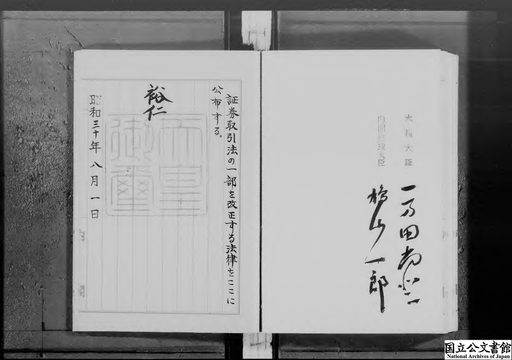 証券取引法の一部を改正する法律をここに
公布する。
裕仁
天皇
御璽
昭和三十年八月一日
大蔵大臣
一万田尚登
内閣総理大臣
鳩山一郎
国立公文書館
National Archives of Japan